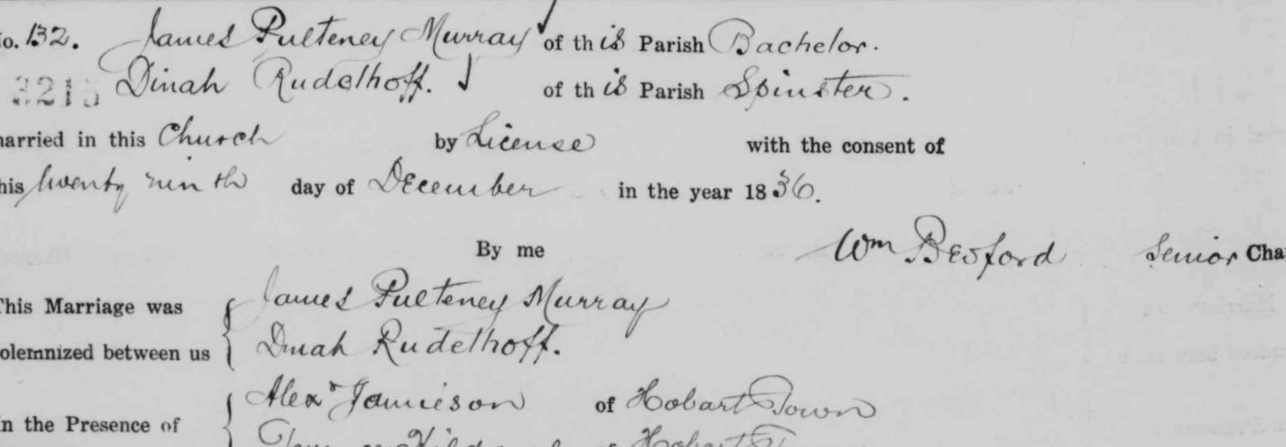 No. 132. James Pulteney Murray of this Parish Bachelor.
3215 Dinah Rudelhoff. of this Parish Spinster.
married in this Church by License with the consent of
this twenty ninth day of December in the year 1836.
By me Wm Bedford Senior Cha
This Marriage was
solemnized between us
James Pulteney Murray
Dinah Rudelhoff.
In the Presence of
Alexr Jamieson of Hobart Town
Hobart